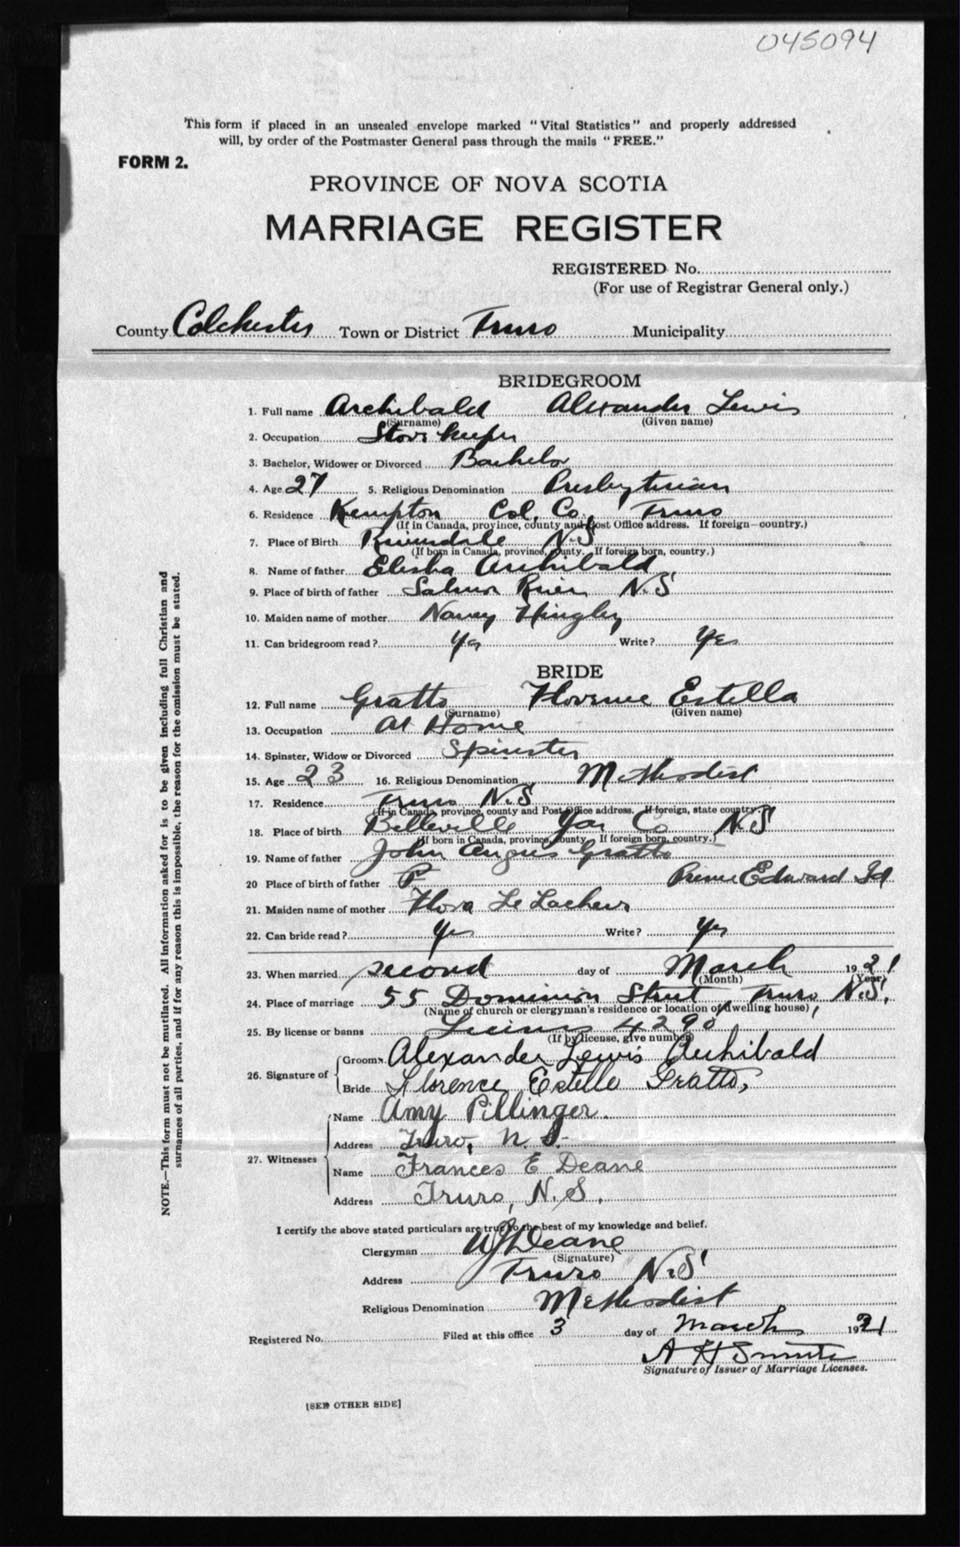 045094
This form if placed in an unsealed envelope marked "Vital Statistics" and properly addressed
will, by order of the Postmaster General pass through the mails "FREE."
FORM 2.
PROVINCE OF NOVA SCOTIA
MARRIAGE REGISTER
REGISTERED No.
(For use of Registrar General only.)
County Colchester Town or District Truro Municipality
BRIDEGROOM
1. Full name Archibald Alexander Lewis
(Surname) (Given name)
2. Occupation Store keeper
3. Bachelor, Widower or Divorced Bachelor
4. Age 27 5. Religious Denomination Presbyterian
6. Residence Kempton Col. Co. Truro
(If in Canada, province, county and Post Office address. If foreign—country.)
7. Place of Birth Riversdale N.S
(If born in Canada, province, county. If foreign born, country.)
8. Name of father Elisha Archibald
9. Place of birth of father Salmon River N.S
10. Maiden name of mother Nancy Hingley
11. Can bridegroom read? Yes Write? Yes
BRIDE
12. Full name Gratto Florence Estella
(Surname) (Given name)
13. Occupation At Home
14. Spinster, Widow or Divorced Spinster
15. Age 23 16. Religious Denomination Methodist
17. Residence Truro N.S
(If in Canada, province, county and Post Office address. If foreign, state country.)
18. Place of birth Belleville Yar Co N.S
(If born in Canada, province, county. If foreign born, country.)
19. Name of father John Angus Gratto
20 Place of birth of father P Prince Edward Id
21. Maiden name of mother Flora Le Lacheur
22. Can bride read? Yes Write? Yes
23. When married second day of March 1921
(Month) (Year)
24. Place of marriage 55 Dominion Street, Truro N.S.
(Name of church or clergyman's residence or location of dwelling house)
25. By license or banns License 4290
(If by license, give number)
26. Signature of Groom Alexander Lewis Archibald
Bride Florence Estelle Gratto,
27. Witnesses Name Amy Pillinger.
Address Truro, N.S.
Name Frances E Deane
Address Truro, N.S.
I certify the above stated particulars are true to the best of my knowledge and belief.
Clergyman W J Deane
(Signature)
Address Truro N.S
Religious Denomination Methodist
Registered No. Filed at this office 3 day of March 1921
A H Smith
Signature of Issuer of Marriage Licenses.
[SEE OTHER SIDE]
NOTE.—This form must not be mutilated. All information asked for is to be given including full Christian and
surnames of all parties, and if for any reason this is impossible, the reason for the omission must be stated.